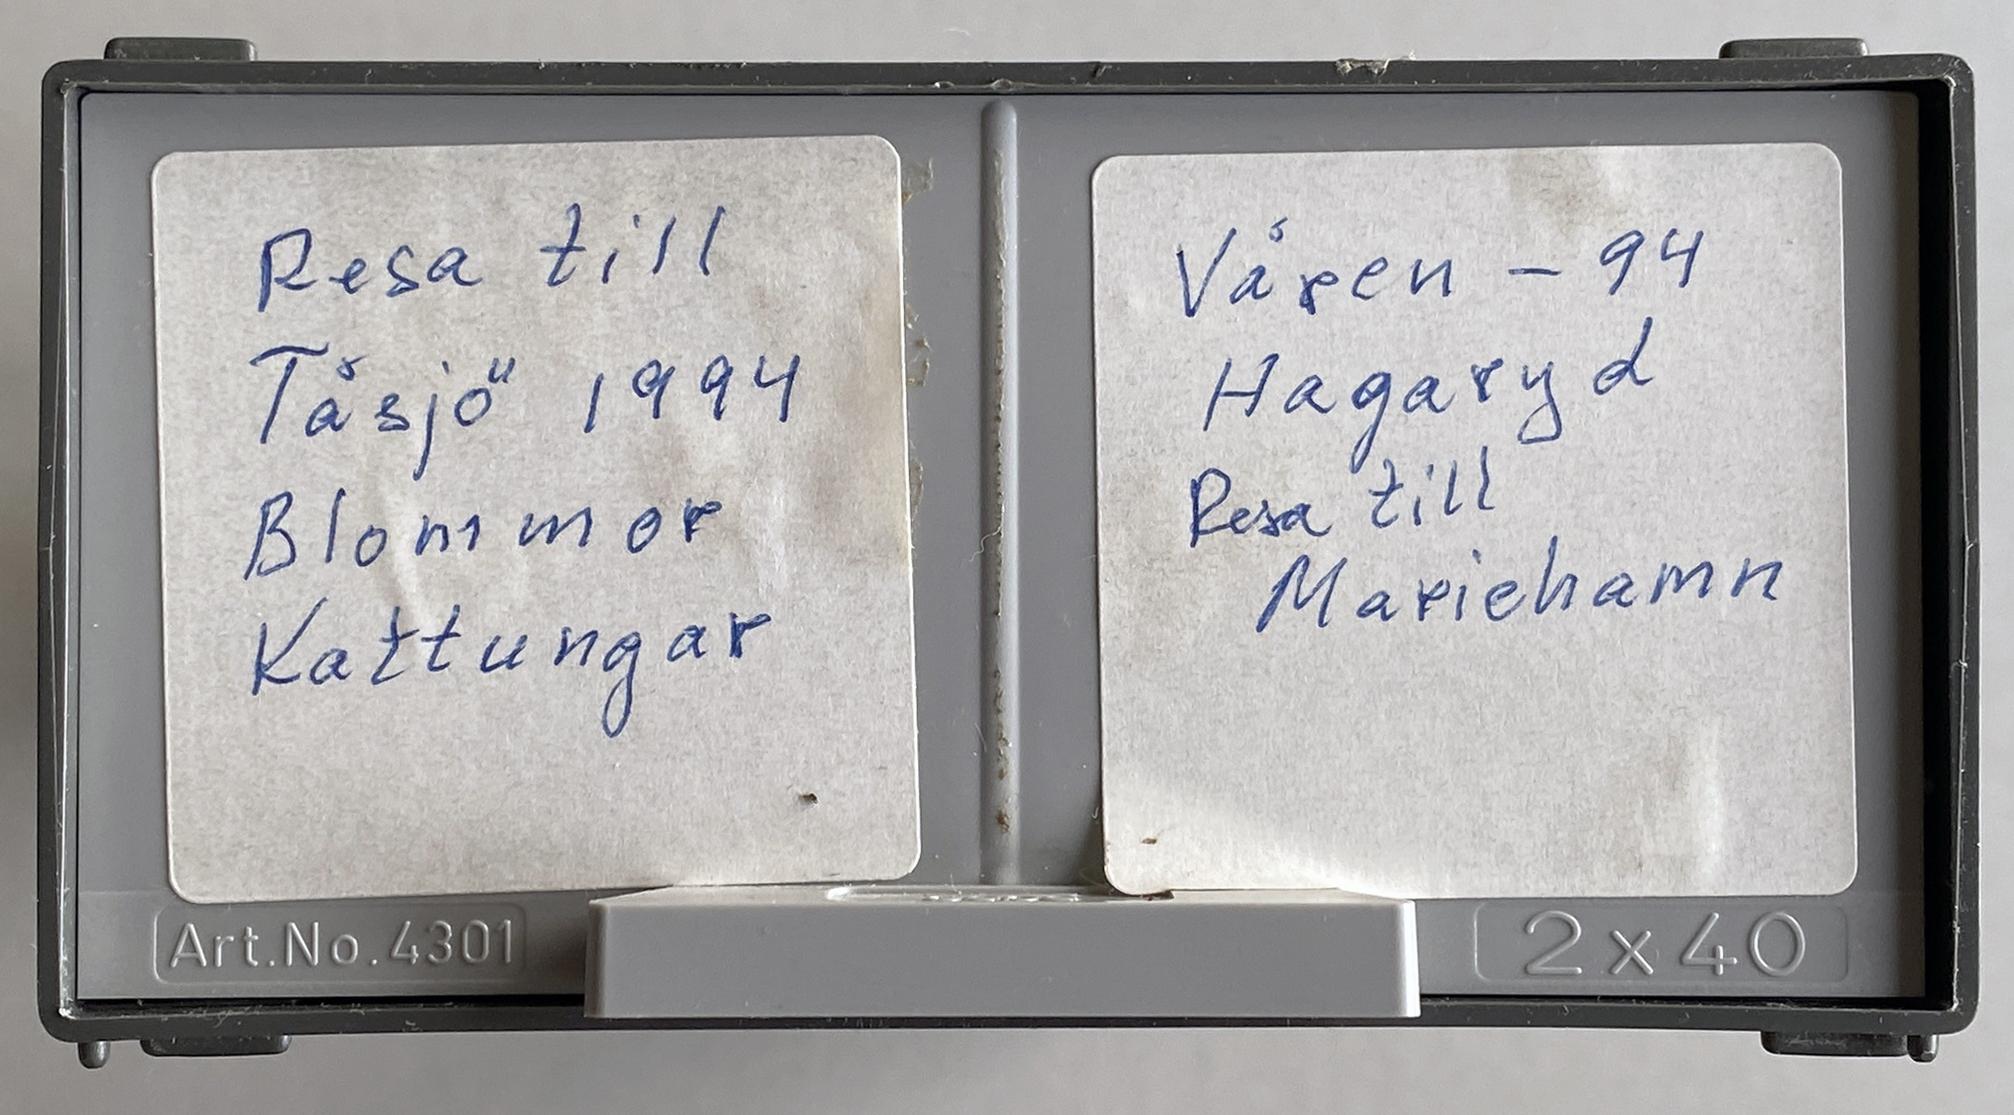 Resa till
Tåsjö 1994
Blommor
Kattungar
Våren - 94
Hagaryd
Resa till
Mariehamn
Art.No.4301
2x40